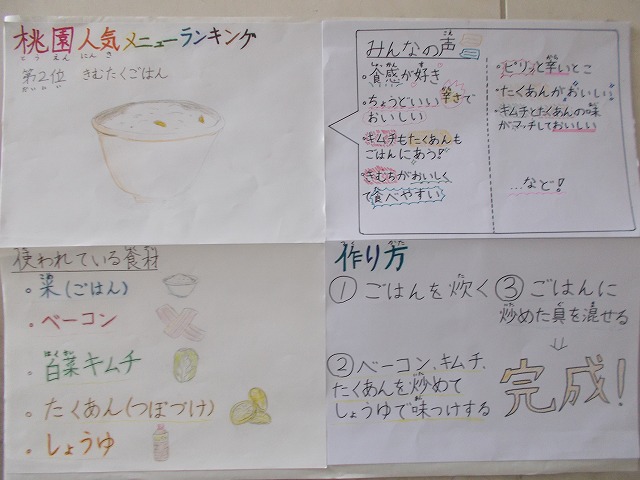 桃園人気メニューランキング
とうえんにんき
第2位 きむたくごはん
だいにい
みんなの声
こえ
・食感が好き
しょっかん す
・ちょうどいい辛さで
から
おいしい
・キムチもたくあんも
ごはんにあう!
・きむちがおいしく
て食べやすい
・ピリッと辛いとこ
から
・たくあんが"おいしい"
・キムチとたくあんの味
あじ
がマッチしておいしい
…など!
使われている食材
・米(ごはん)
こめ
・ベーコン
・白菜キムチ
はくさい
・たくあん(つぼづけ)
・しょうゆ
作り方
つく かた
①ごはんを炊く
た
②ベーコン、キムチ、
たくあんを炒めて
いた
しょうゆで味つけする
あじ
③ごはんに
炒めた具を混ぜる
いた ぐ ま
⇩
完成!